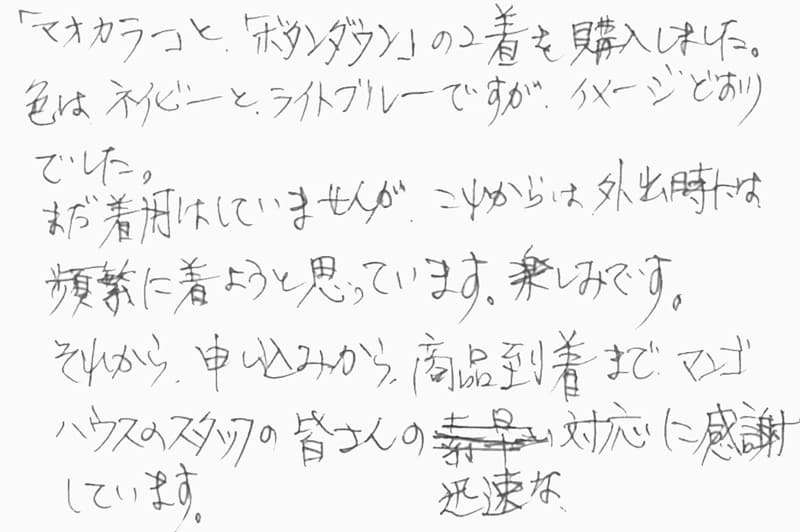 「マオカラー」と、「ボタンダウン」の2着を購入しました。
色は、ネイビーと、ライトブルーですが、イメージどおり
でした。
まだ着用はしていませんが、これからは外出時には
頻繁に着ようと思っています。楽しみです。
それから、申し込みから、商品到着まで、マンゴ
ハウスのスタッフの皆さんの素早い対応に感謝
しています。 迅速な